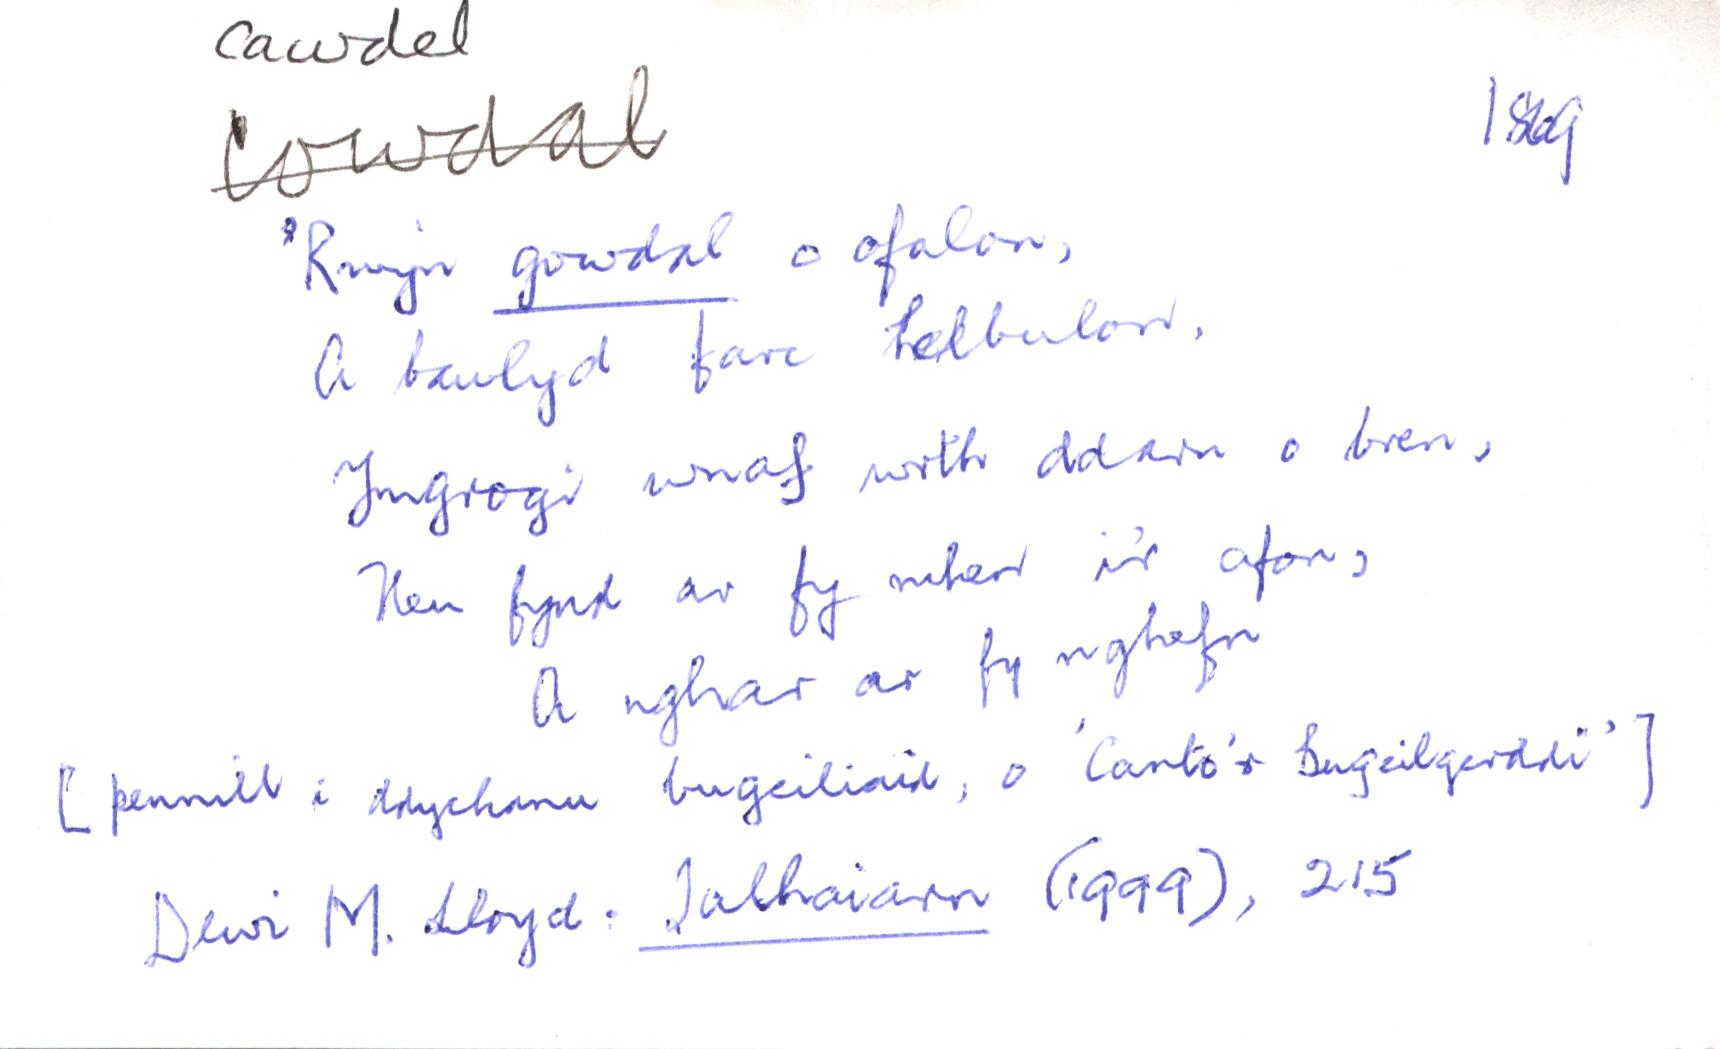 cawdel
cowdal
1869
'Rwyn gowdal o ofalon,
A bawlyd farc helbulon,
Ymgrogi wnaf wrth ddarn o bren,
Neu fynd ar fy mhen i'r afon,
A nghar ar fy nghefn
[pennill i ddychanu bugeiliaid, o 'Canto'r Bugeilgerddi']
Dewi M. Lloyd: Talhaiarn (1999), 215